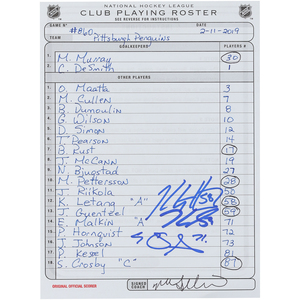 NATIONAL HOCKEY LEAGUE
CLUB PLAYING ROSTER
SEE REVERSE FOR INSTRUCTIONS
GAME N° #860 DATE 2-11-2019
TEAM Pittsburgh Penguins
GOALKEEPERS PLAYER #
1. M. Murray 30
2. C. DeSmith 1
OTHER PLAYERS
1. O. Maatta 3
2. M. Cullen 7
3. B. Dumoulin 8
4. G. Wilson 10
5. D. Simon 12
6. T. Pearson 14
7. B. Rust 17
8. J. McCann 19
9. N. Bjugstad 27
10. M. Pettersson 28
11. J. Riikola 50
12. K. Letang "A" 58
13. J. Guentzel 59
14. E. Malkin "A" 71
15. P. Hornquist 72
16. J. Johnson 73
17. P. Kessel 81
18. S. Crosby "C" 87
58
59
71
OFFICIAL SCORER
SIGNED COACH